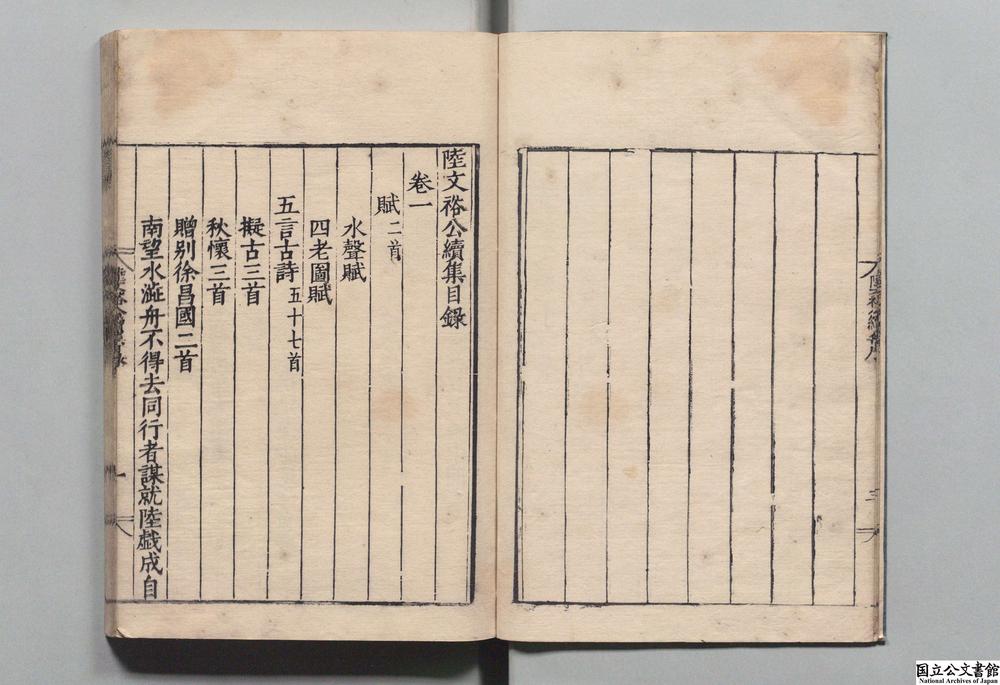 陸文裕公續集目錄
卷一
賦二首
水聲賦
四老圖賦
五言古詩五十七首
擬古三首
秋懷三首
贈別徐昌國二首
南望水漲舟不得去同行者謀就陸戱成自
一
三
国立公文書館
National Archives of Japan